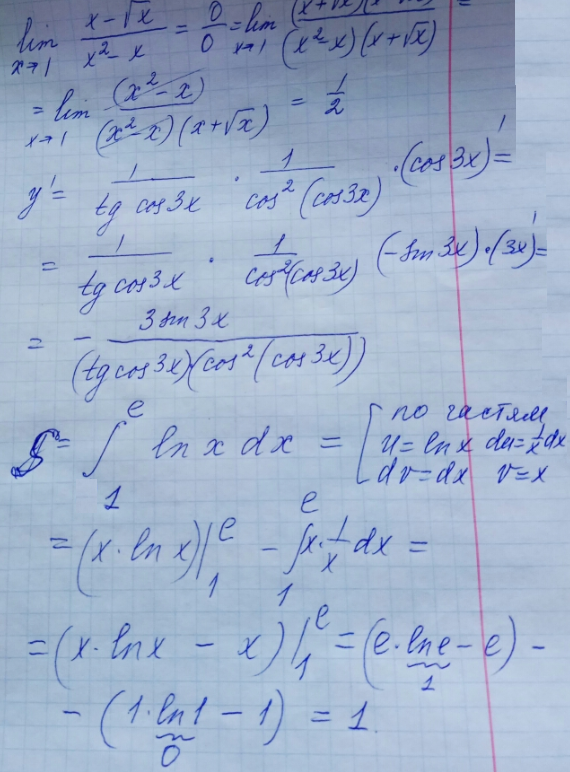 lim x→1 (x-√x)/(x²-x) = 0/0 = lim x→1 (x+√x)(x-√x)/(x²-x)(x+√x) =
= lim x→1 (x²-x)/(x²-x)(x+√x) = 1/2
y' = 1/(tg cos3x) · 1/(cos²(cos3x)) · (cos3x)' =
= 1/(tg cos3x) · 1/(cos²(cos3x)) (-sin3x)·(3x)' =
= - 3sin3x/((tg cos3x)(cos²(cos3x)))
S = ∫₁ᵉ ln x dx = [по частям
u = ln x du = 1/x dx
dv = dx v = x
= (x·ln x)|₁ᵉ - ∫₁ᵉ x·1/x dx =
= (x·lnx - x)|₁ᵉ = (e·lne - e) -
1
- (1·ln1 - 1) = 1.
0